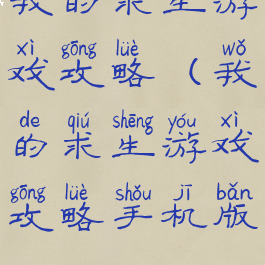 我的求生游
xì gōng lüè wǒ
戏攻略（我
de qiú shēng yóu xì
的求生游戏
gōng lüè shǒu jī bǎn
攻略手机版